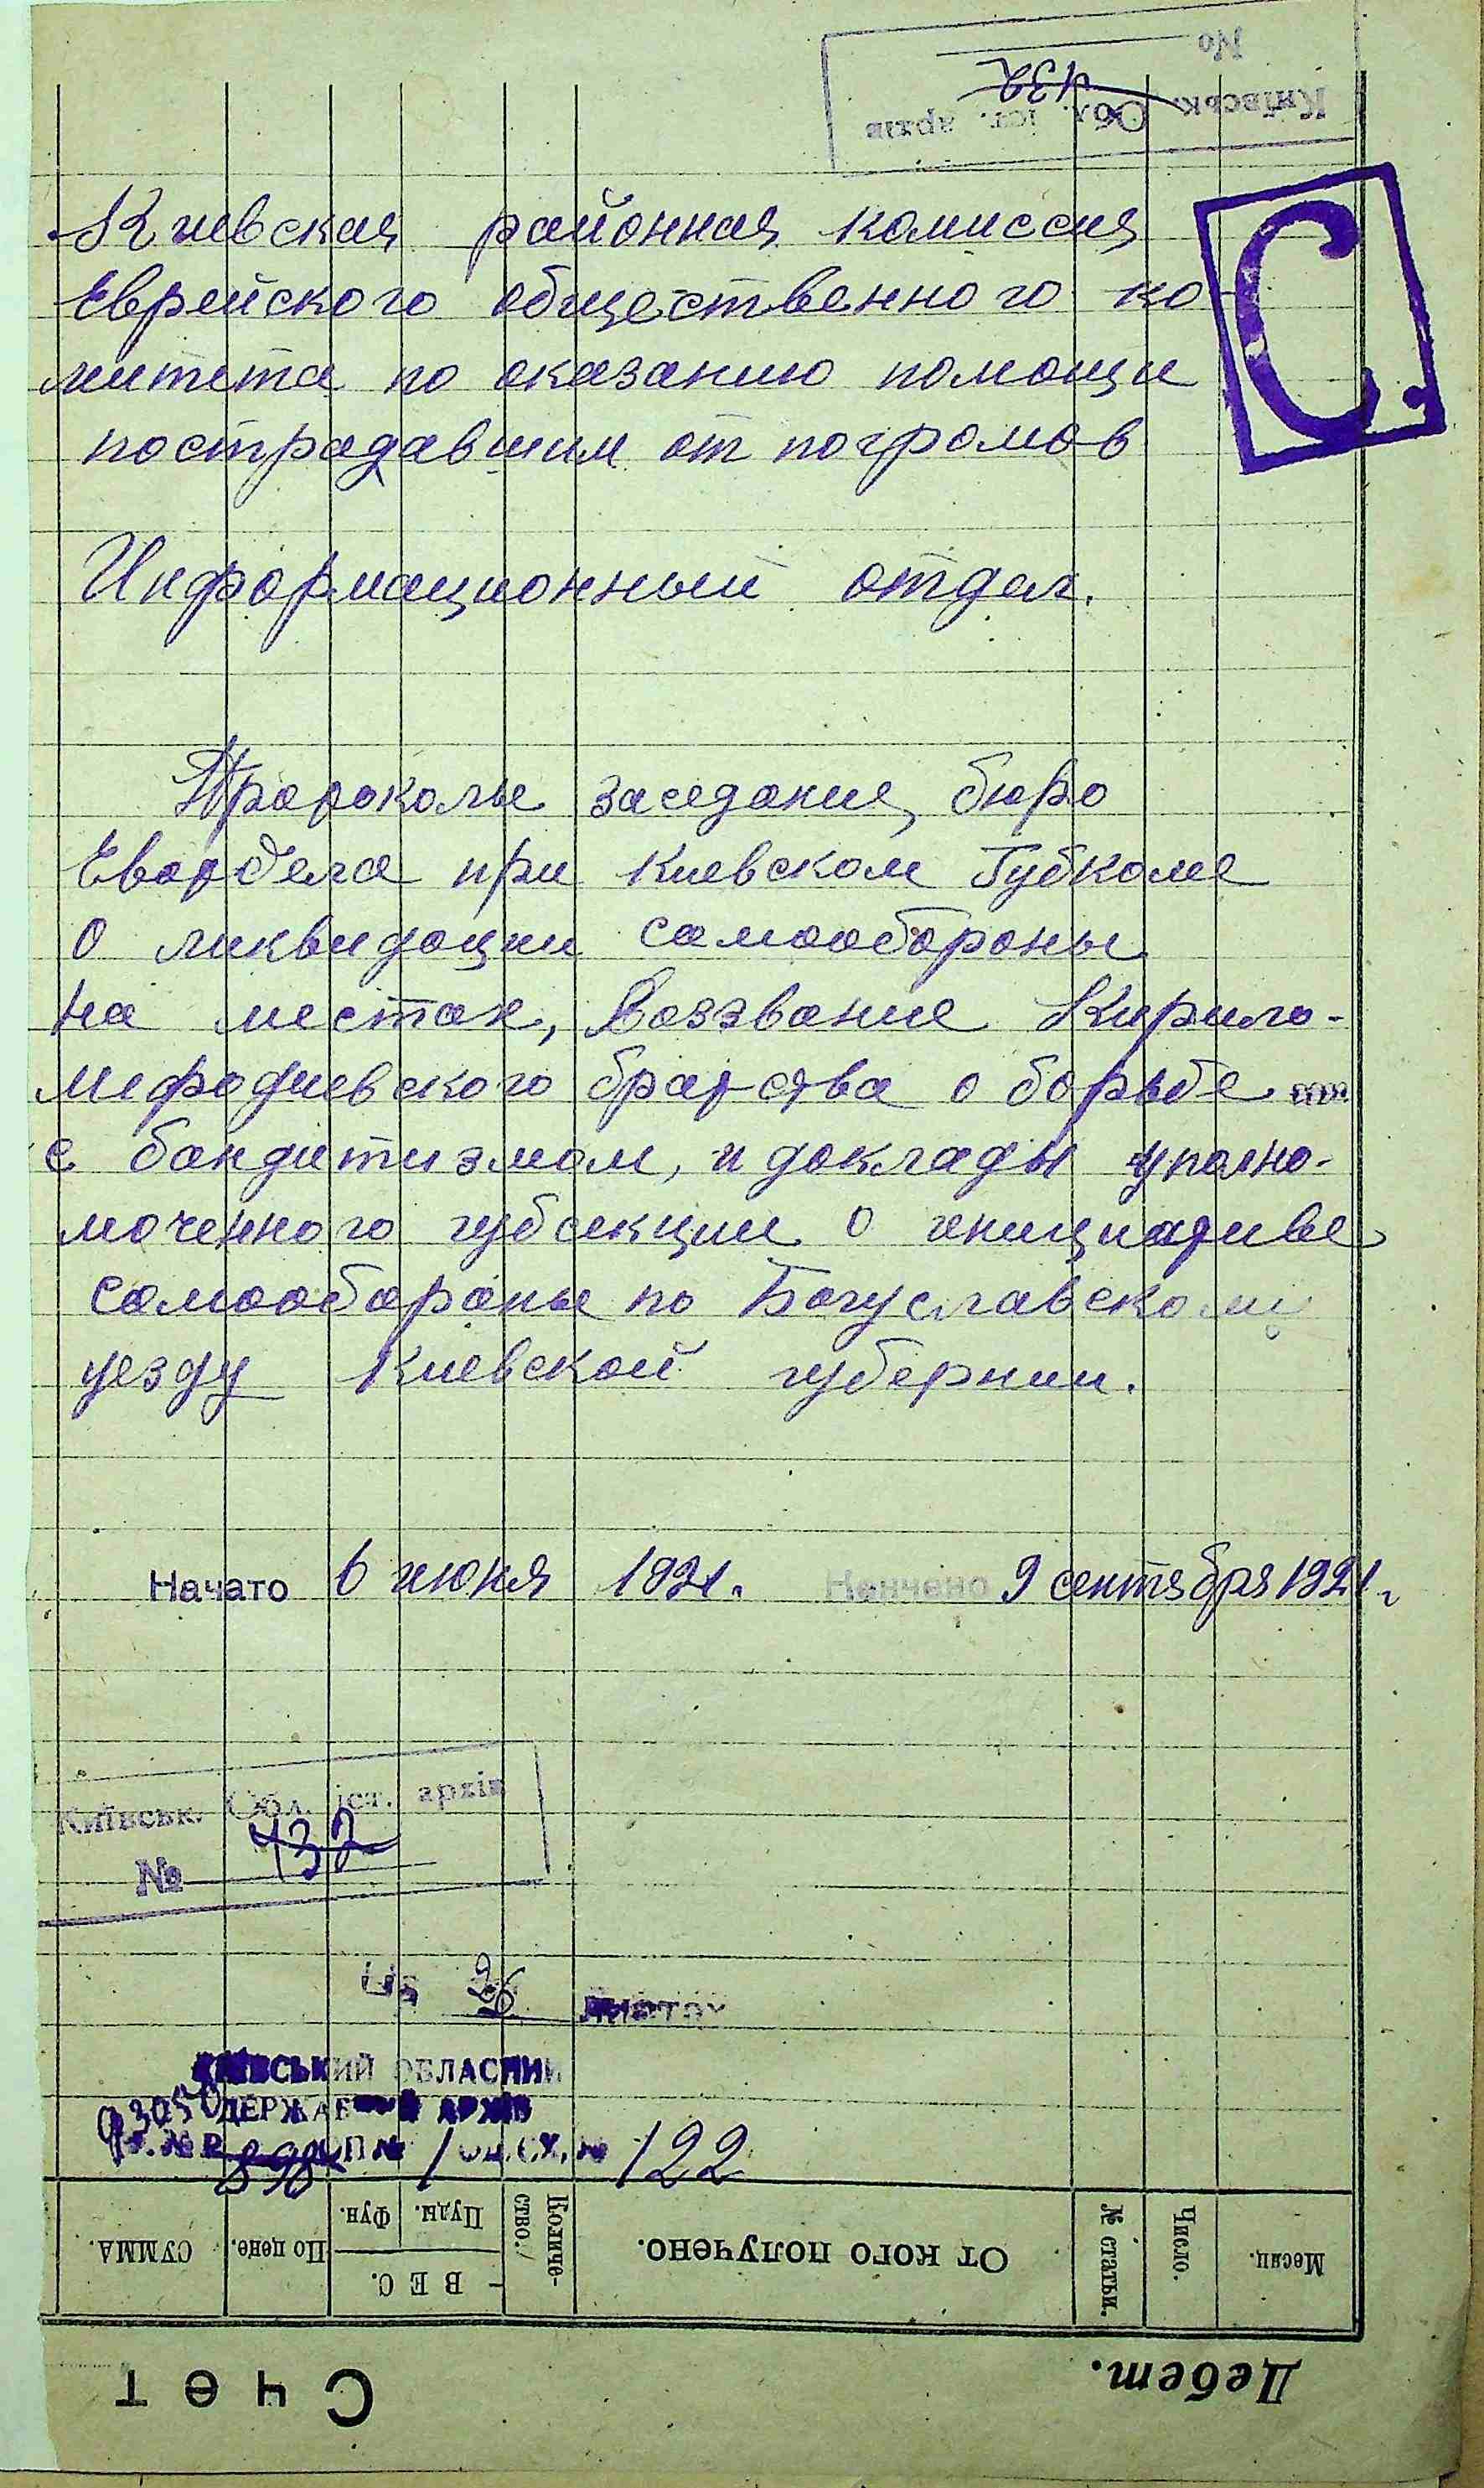 Київськ. Обл. іст. архів
№ 432
С.
Киевская районная комиссия
Еврейского общественного ко-
митета по оказанию помощи
пострадавшим от погромов
Информационный отдел.
Протоколы заседания бюро
Евотдела при Киевском Губкоме
о ликвидации самообороны
на местах, Воззвание Кирило-
мефодиевского братства о борьбе
с бандитизмом, и доклады уполно-
моченного губсекции о инициативе
самообороны по Богуславскому
уезду Киевской губернии.
Начато 6 июня 1921. Кончено 9 сентября 1921 г.
Київськ. Обл. іст. архів
№ 432
На 26 листах
КИЇВСЬКИЙ ОБЛАСНИЙ
ДЕРЖАВНИЙ АРХІВ
Ф. № Р 3050 898 ОП № 1 ОД. СХ. № 122
Счет
Дебет.
Месяц. Число. № статьи. От кого получено. Количе-
ство. ВЕС. Пуды. Фун. По цене. СУММА.